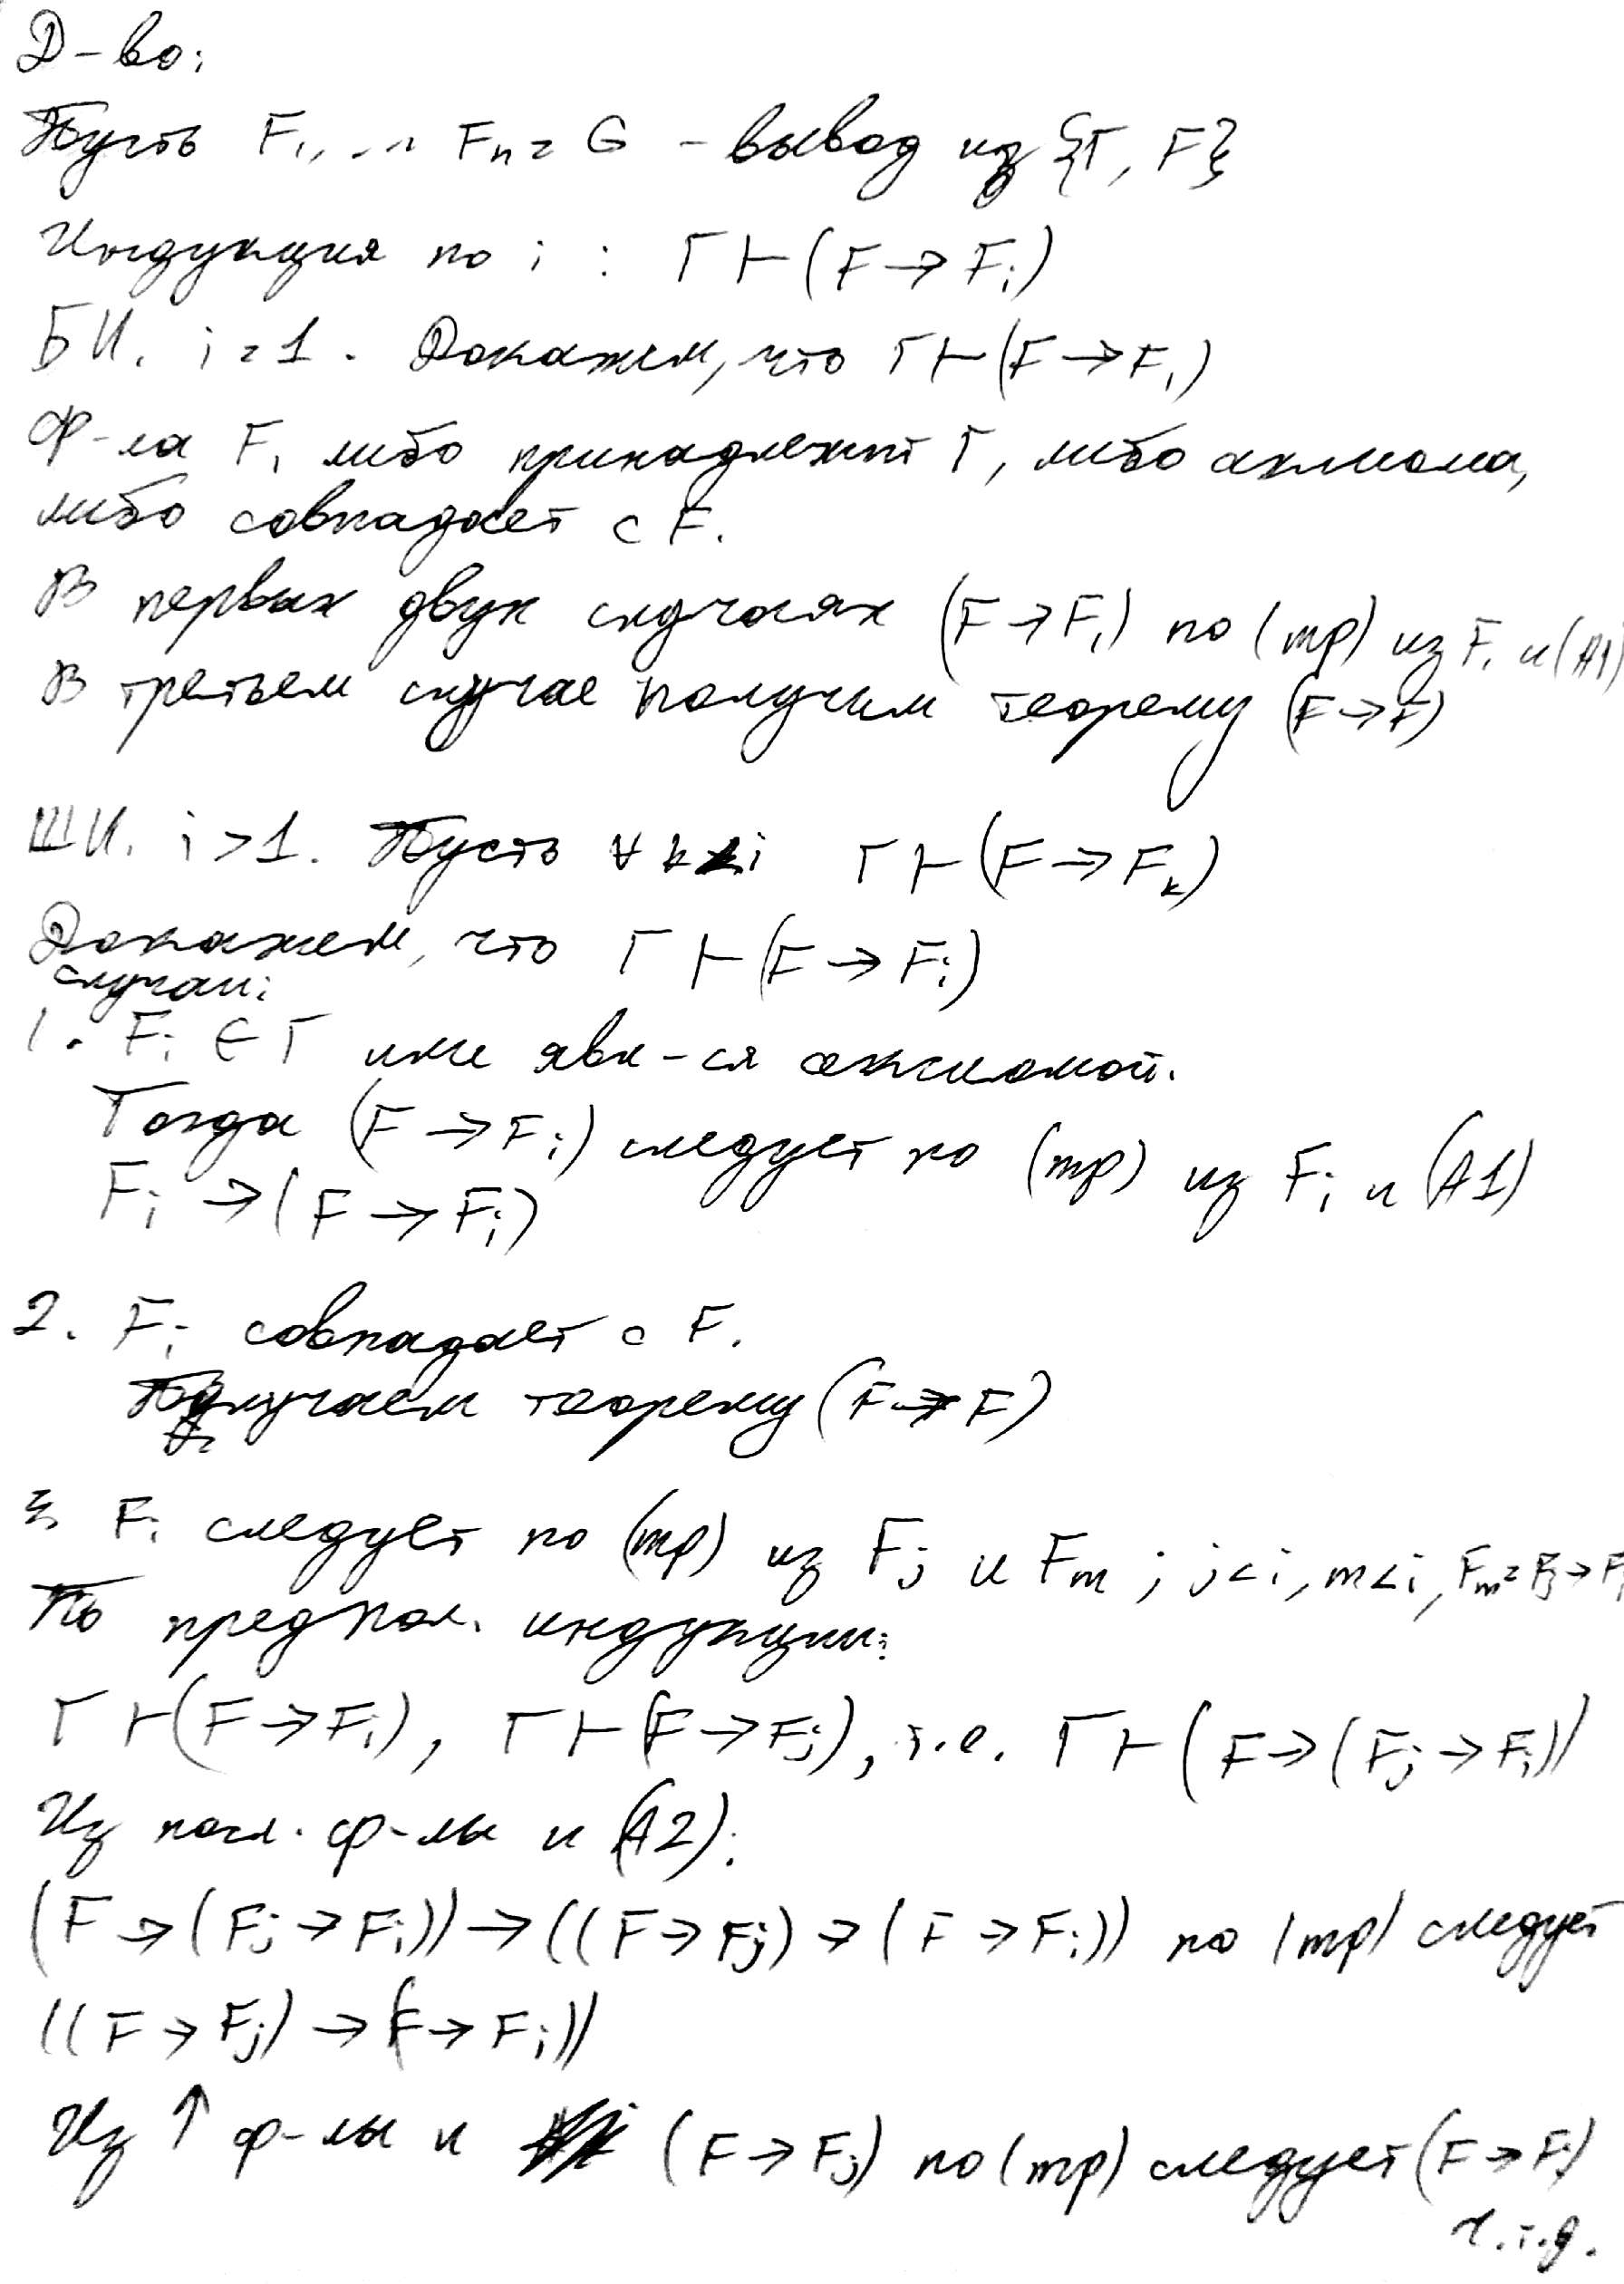 Д-во:
Пусть F₁, ... Fₙ = G - вывод из {Γ, F}
Индукция по i : Γ ⊢ (F → Fᵢ)
БИ. i = 1. Докажем, что Γ ⊢ (F → F₁)
Ф-ла F₁ либо принадлежит Γ, либо аксиома,
либо совпадает с F.
В первых двух случаях (F → F₁) по (mp) из F₁ и (A1)
В третьем случае получим теорему (F → F)
ШИ. i > 1. Пусть ∀ k < i Γ ⊢ (F → Fₖ)
Докажем, что Γ ⊢ (F → Fᵢ)
случаи:
1. Fᵢ ∈ Γ или явл-ся аксиомой.
Тогда (F → Fᵢ) следует по (mp) из Fᵢ и (A1)
Fᵢ → (F → Fᵢ)
2. Fᵢ совпадает с F.
Получаем теорему (F → F)
3. Fᵢ следует по (mp) из Fⱼ и Fₘ ; j < i, m < i, Fₘ = Fⱼ → Fᵢ
По предпол. индукции:
Γ ⊢ (F → Fᵢ), Γ ⊢ (F → Fⱼ), т.е. Γ ⊢ (F → (Fⱼ → Fᵢ))
Из посл. ф-лы и (A2):
(F → (Fⱼ → Fᵢ)) → ((F → Fⱼ) → (F → Fᵢ)) по (mp) следует
((F → Fⱼ) → (F → Fᵢ))
Из ↑ ф-лы и (F → Fⱼ) по (mp) следует (F → Fᵢ)
ч.т.д.